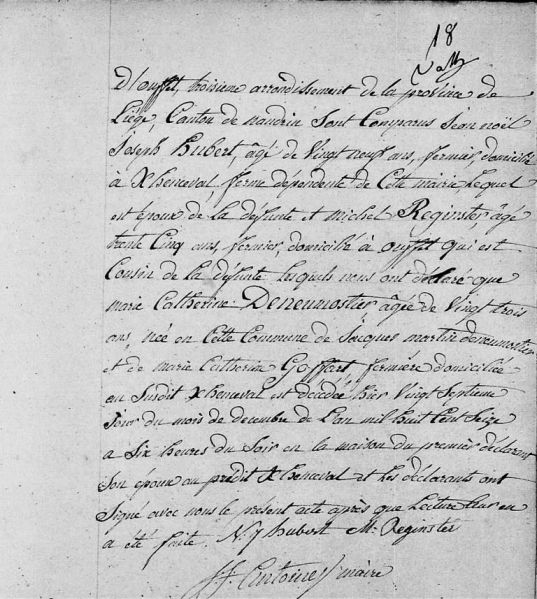 18
D'ouffet, troisieme arrondissement de la province de
Liége, Canton de nandrin Sont Comparus Jean noël
Joseph hubert, âgé de Vingt neuf ans, fermier, domicilié
à Xhenceval ferme dépendente de Cete mairie lequel
est époux de la defunte et michel Reginster, âgé
trente Cinq ans, fermier, domicilié à ouffet qui est
Cousin de la defunte lesquels nous ont déclaré que
marie Catherine Deneumostier, âgée de Vingt trois
ans, née en Cette Commune de Jacques martin deneumostier
et de marie Catherine Goffart fermière domiciliée
au Susdit Xhenceval est décedée hier Vingt Septieme
Jour du mois de decembre de l'an mil huit Cent Seize
a Six heures du Soir en la maison du premier déclarant
Son epoux au prédit Xhenceval et les déclarants ont
Signé avec nous le présent acte après que Lecture leur en
a été faite. N. J hubert M: Reginster
Antoine maire